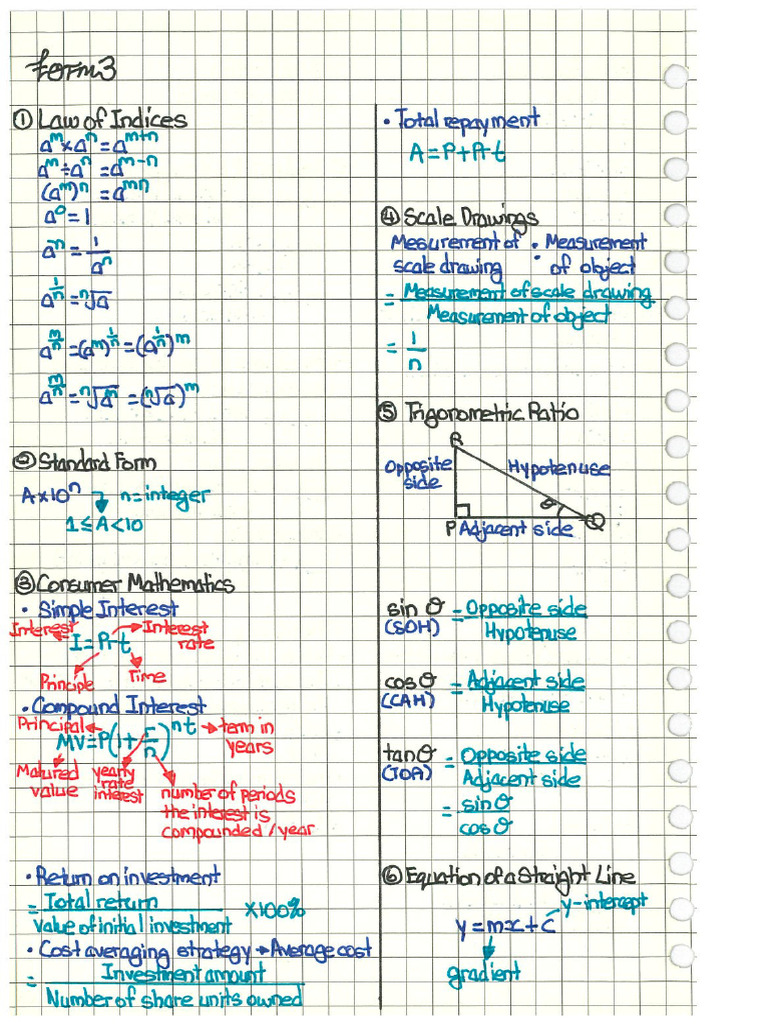 Form 3
① Law of Indices
aᵐ × aⁿ = aᵐ⁺ⁿ
aᵐ ÷ aⁿ = aᵐ⁻ⁿ
(aᵐ)ⁿ = aᵐⁿ
a⁰ = 1
a⁻ⁿ = 1/aⁿ
a^(1/n) = ⁿ√a
a^(m/n) = (aᵐ)^(1/n) = (a^(1/n))ᵐ
a^(m/n) = ⁿ√aᵐ = (ⁿ√a)ᵐ
② Standard Form
A × 10ⁿ → n = integer
1 ≤ A < 10
③ Consumer Mathematics
• Simple Interest
Interest ← I = Prt → Interest rate
Principle Time
• Compound Interest
Principal ← MV = P(1 + r/n)ⁿᵗ → term in years
Matured value
yearly rate interest
number of periods
the interest is
compounded / year
• Return on investment
= Total return / Value of initial investment × 100%
• Cost averaging strategy → Average cost
= Investment amount / Number of share units owned
• Total repayment
A = P + Prt
④ Scale Drawings
Mesurement of scale drawing : Measurement of object
= Measurement of scale drawing / Measurement of object
= 1/n
⑤ Trigonometric Ratio
R
Opposite side
Hypotenuse
θ
P Adjacent side Q
sin θ = Opposite side / Hypotenuse
(SOH)
cos θ = Adjacent side / Hypotenuse
(CAH)
tan θ = Opposite side / Adjacent side
(TOA)
= sin θ / cos θ
⑥ Equation of a Straight Line
y-intercept
y = mx + c
gradient